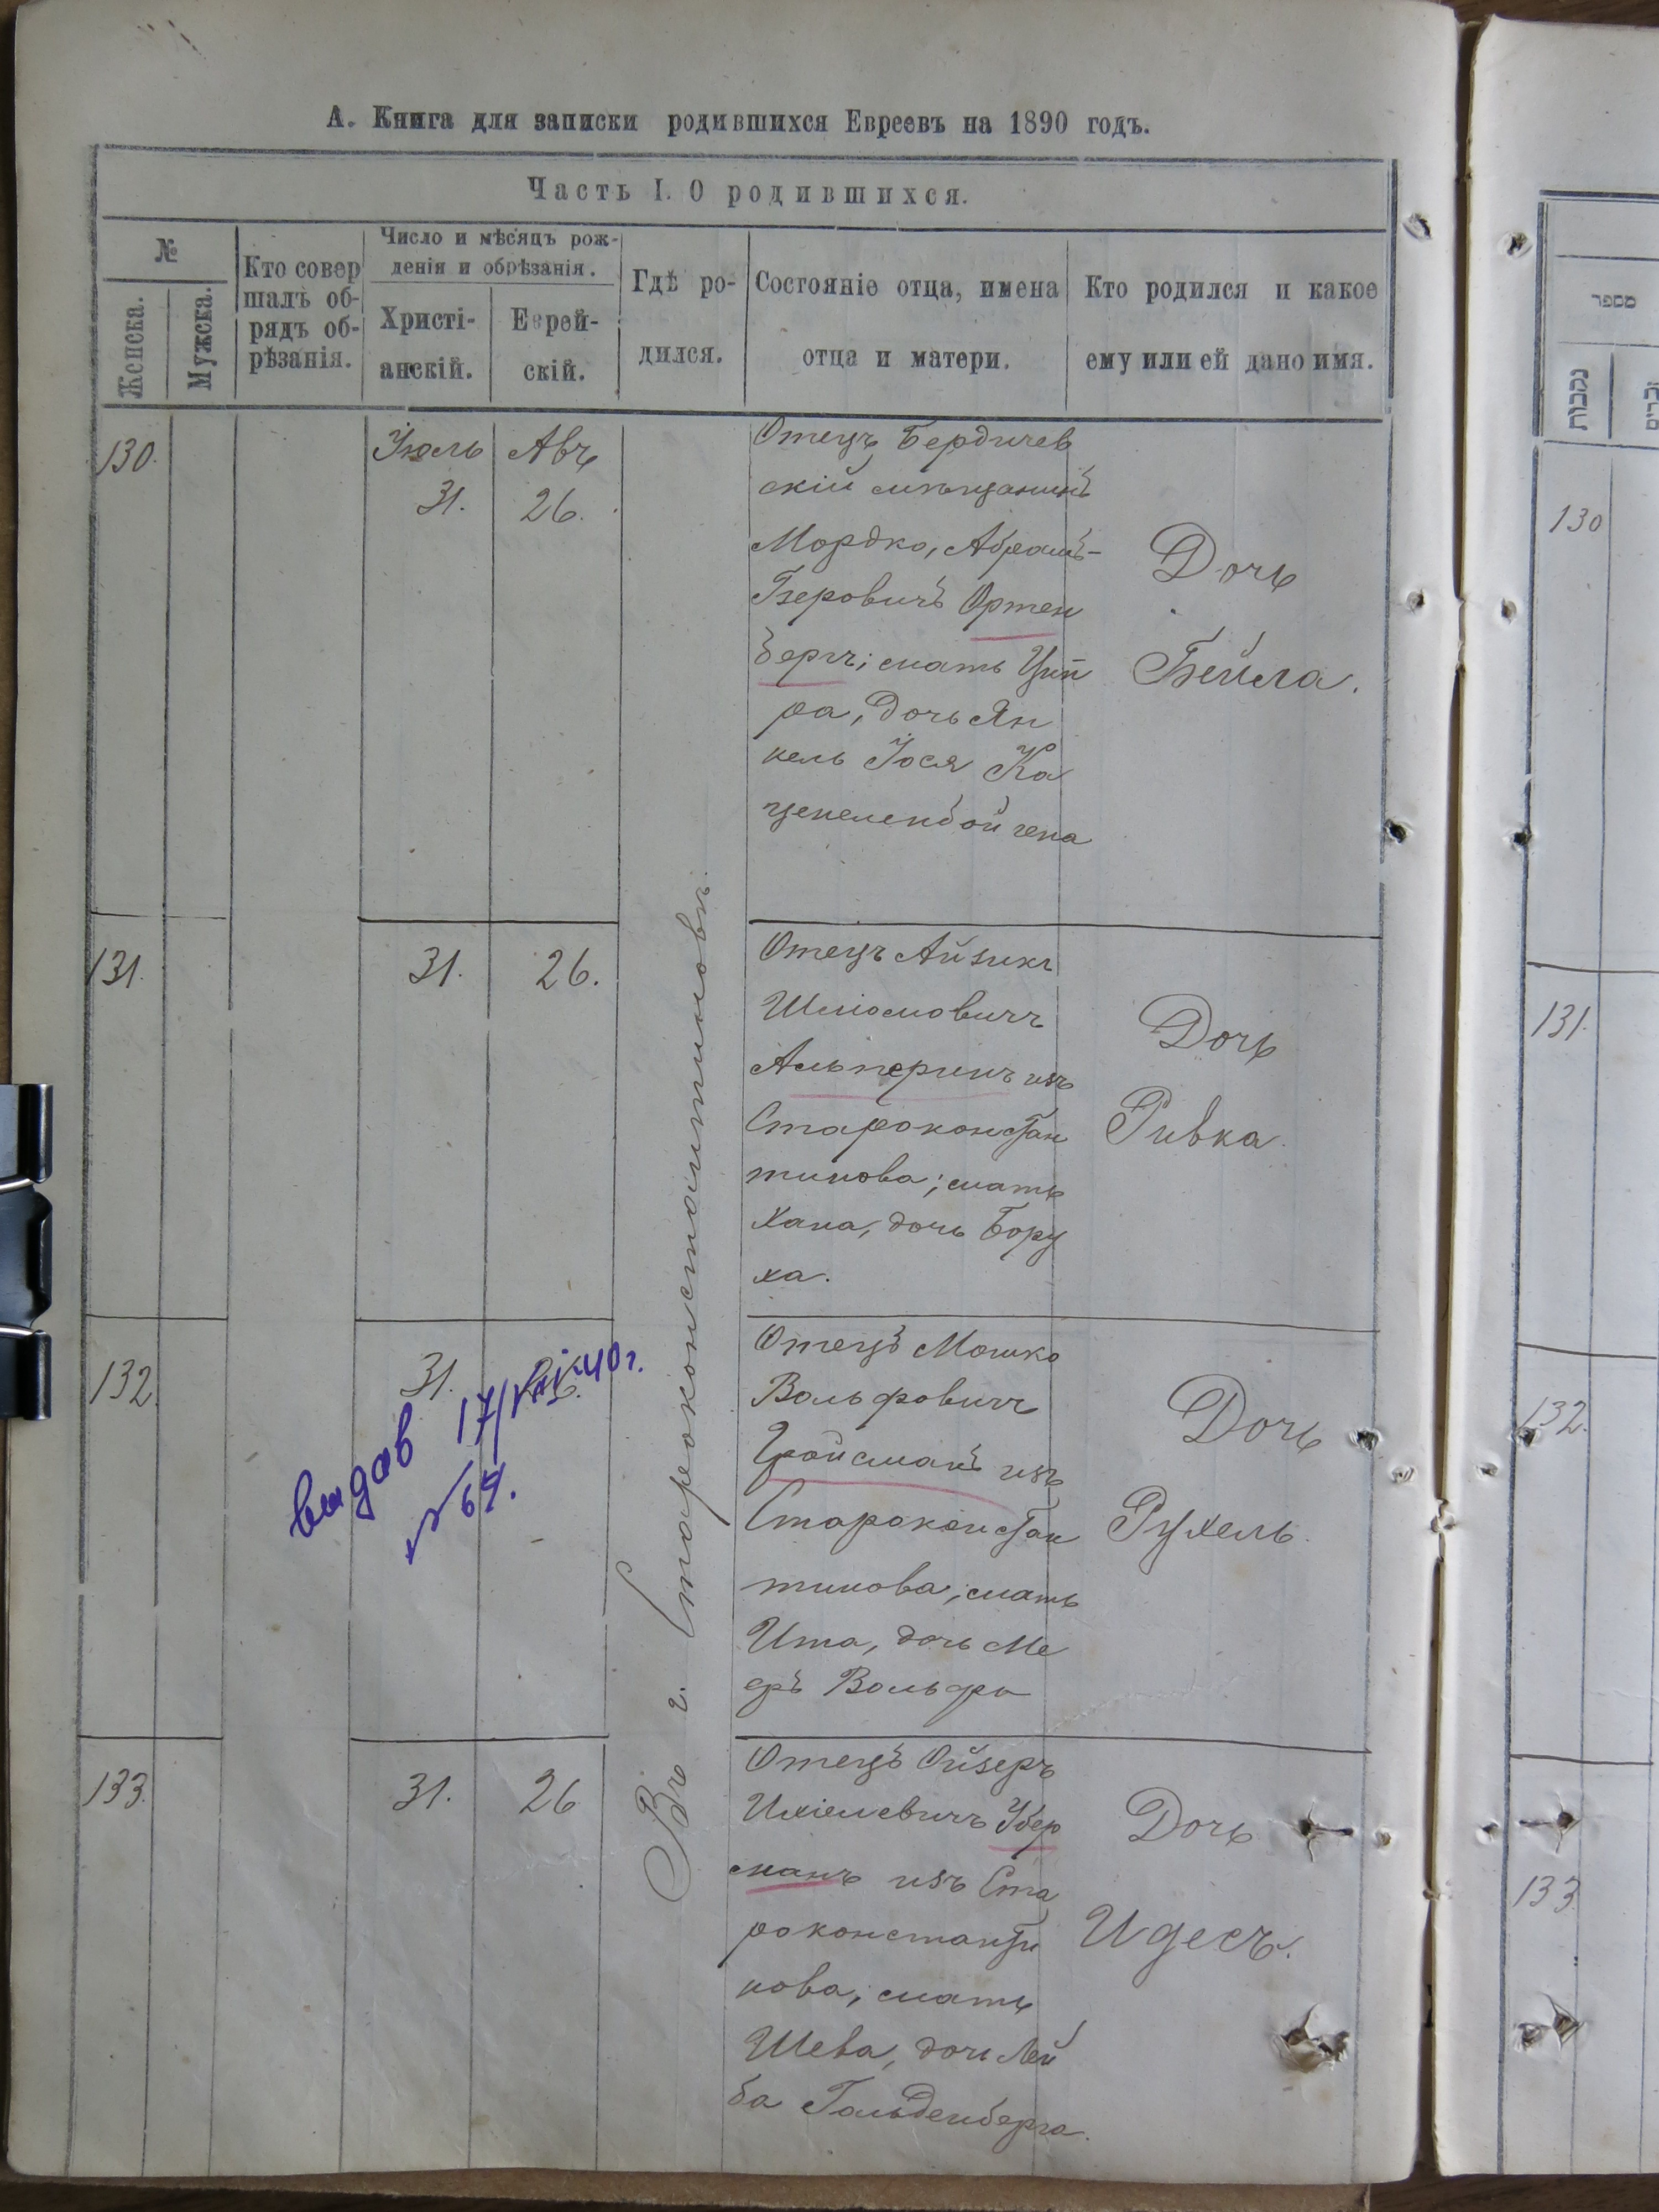 А. Книга для записки родившихся Евреевъ на 1890 годъ.
Часть I. О родившихся.
№
Женска.
Мужска.
Кто совер
шалъ об-
рядъ об-
рѣзанія.
Число и мѣсяцъ рож-
денія и обрѣзанія.
Христі-
анскій.
Еврей-
скій.
Гдѣ ро-
дился.
Состояніе отца, имена
отца и матери.
Кто родился и какое
ему или ей дано имя.
130.
Іюль
31.
Авъ
26.
Отецъ Бердичев
скій мѣщанинъ
Мордко, Абрамъ-
Геровичъ Ортен
бергъ; мать Цип
ра, дочь Ян
кель Іося Ка
ценеленбойгена
Дочь
Бейла.
Въ г. Староконстантиновъ.
131.
31.
26.
Отецъ Айзикъ
Шліомовичъ
Альперинъ изъ
Староконстан
тинова; мать
Хана, дочь Бору
ха.
Дочь
Ривка.
132
31.
26.
видав 17/VIII-40 г.
Отецъ Мошко
Вольфовичъ
Гройсманъ изъ
Староконстан
тинова; мать
Ита, дочь Ме
еръ Вольфа
Дочь
Рухель.
133.
31.
26
Отецъ Ойзеръ
Ихіелевичъ Убер
манъ изъ Ста
роконстанти
нова; мать
Шева, дочь Лей
ба Гольденберга.
Дочь
Идесъ.
מספר
נקבות
זכרים
130
131.
132.
133